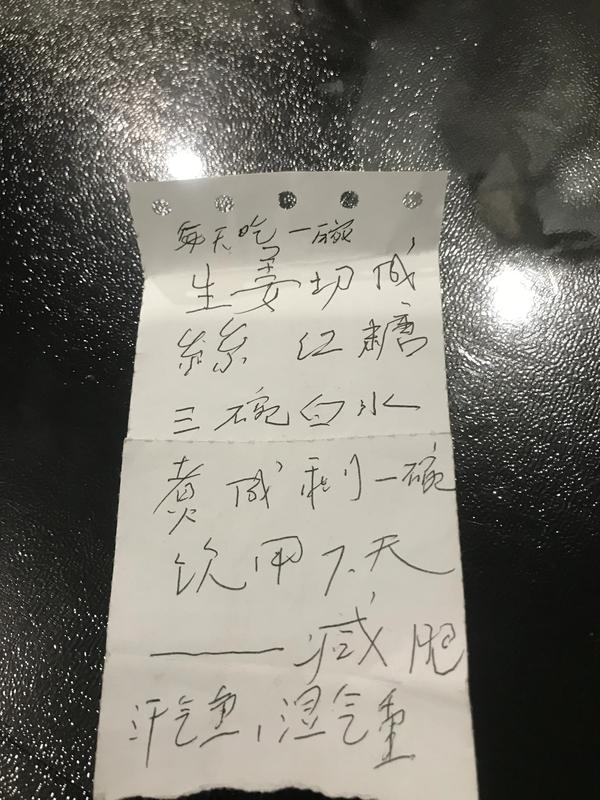 每天吃一碗
生姜切成
絲 红糖
三碗白水
煮成剩一碗
饮用7.天
——減肥
汗气重,湿气重